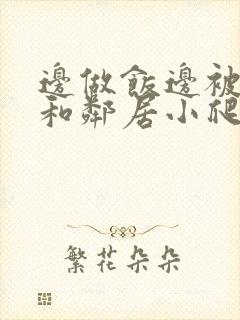 邊做飯邊被
和鄰居小爬
繁花朵朵